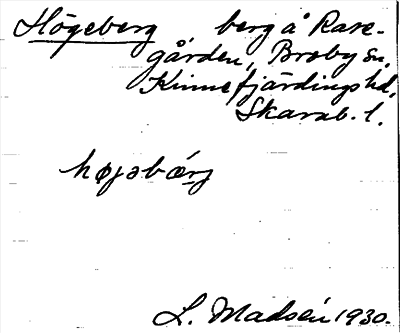 Högeberg berg å Rase-
gården, Broby sn,
Kinnefjärdings hd,
Skarab. l.
højəbærj
L. Madsén 1930.